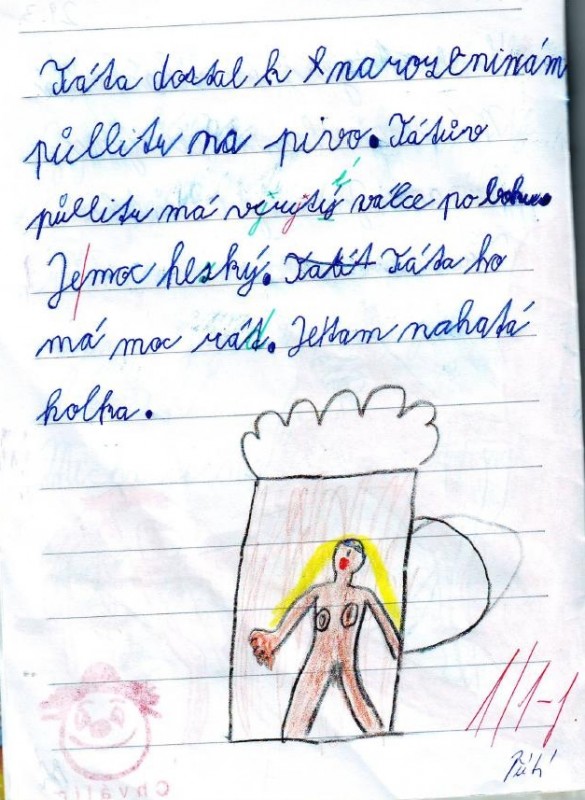 Táta dostal k narozeninám
půllitr na pivo. Tátův
půllitr má vyrytý válce po boku.
Je moc hezký. Táta ho
má moc rád. Je tam nahatá
holka.